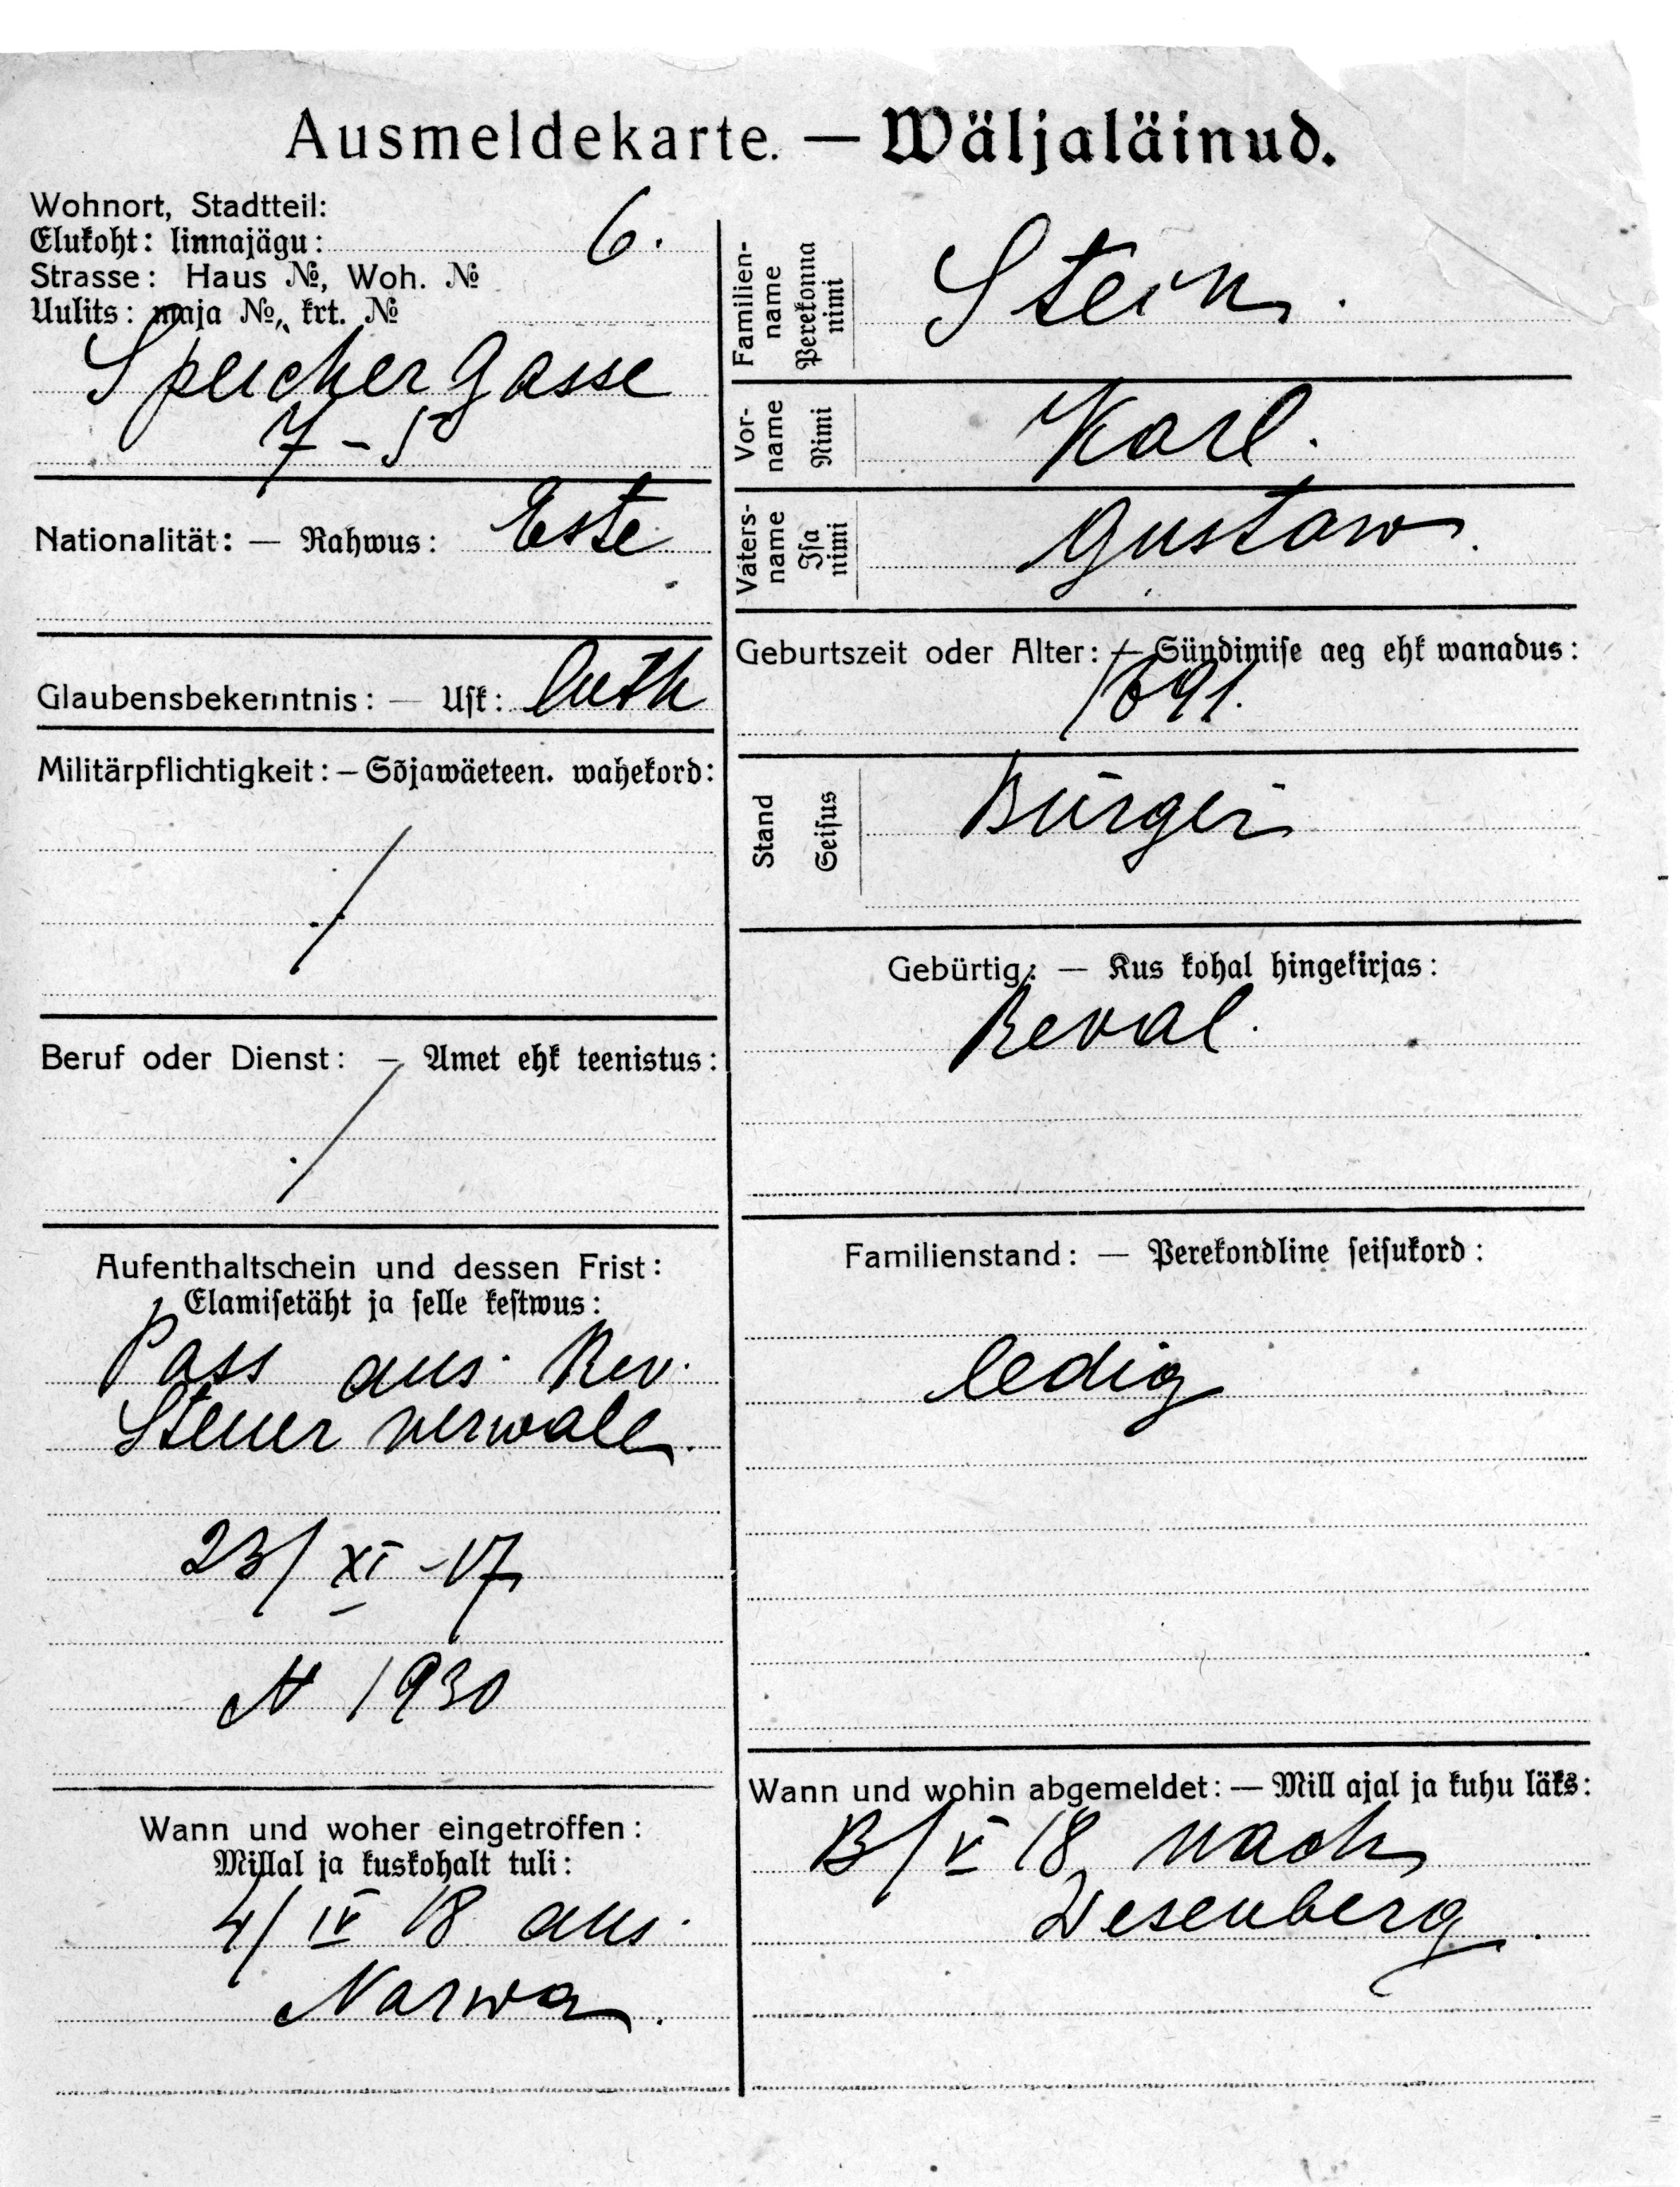 Ausmeldekarte. — Wäljaläinud.
Wohnort, Stadtteil:
Elukoht: linnajägu: 6.
Strasse: Haus №, Woh. №
Uulits: maja №, krt. №
Speicher Gasse
7 - 5
Nationalität: — Rahwus: Este
Glaubensbekenntnis: — Usk: luth
Militärpflichtigkeit: — Sõjawäeteen. wahekord:
Beruf oder Dienst: — Amet ehk teenistus:
Aufenthaltschein und dessen Frist:
Elamisetäht ja selle kestwus:
Pass aus Rev.
Steuer verwalt.
23/XI -17
№ 1930
Wann und woher eingetroffen:
Millal ja kuskohalt tuli:
4/IV 18 aus
Narwa.
Familien-
name
Perekonna
nimi
Stein.
Vor-
name
Nimi
Karl.
Vaters-
name
Isa
nimi
Gustaw.
Geburtszeit oder Alter: — Sündimise aeg ehk wanadus:
1891.
Stand
Seisus
Bürger
Gebürtig: — Kus kohal hingekirjas:
Reval.
Familienstand: — Perekondline seisukord:
ledig
Wann und wohin abgemeldet: — Mill ajal ja kuhu läks:
13/V 18 nach
Wesenberg.